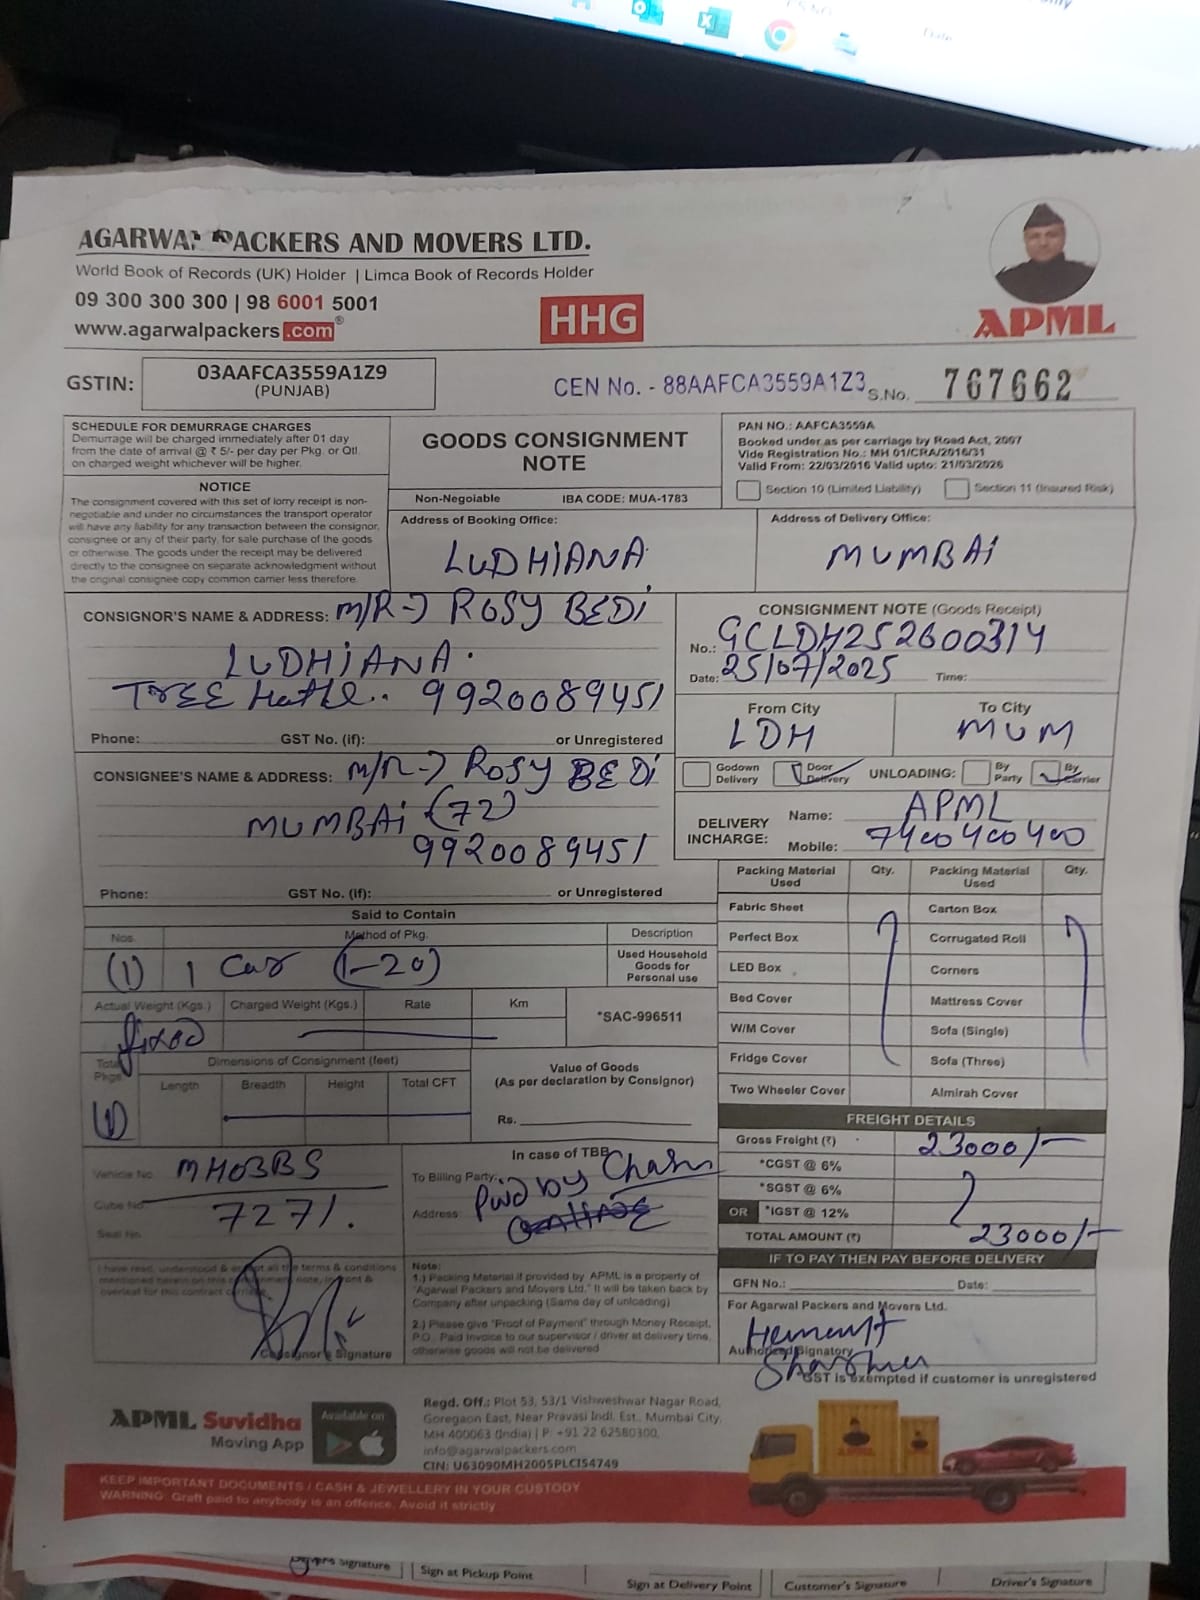 AGARWAL PACKERS AND MOVERS LTD.
World Book of Records (UK) Holder | Limca Book of Records Holder
09 300 300 300 | 98 6001 5001
www.agarwalpackers.com®
HHG
APML
GSTIN:
03AAFCA3559A1Z9
(PUNJAB)
CEN No. - 88AAFCA3559A1Z3
S.No. 767662
SCHEDULE FOR DEMURRAGE CHARGES
Demurrage will be charged immediately after 01 day
from the date of arrival @ ₹ 5/- per day per Pkg. or Qtl.
on charged weight whichever will be higher.
NOTICE
The consignment covered with this set of lorry receipt is non-
negotiable and under no circumstances the transport operator
will have any liability for any transaction between the consignor,
consignee or any of their party, for sale purchase of the goods
or otherwise. The goods under the receipt may be delivered
directly to the consignee on separate acknowledgment without
the original consignee copy common carrier less therefore.
GOODS CONSIGNMENT
NOTE
Non-Negoiable
IBA CODE: MUA-1783
PAN NO.: AAFCA3559A
Booked under as per carriage by Road Act, 2007
Vide Registration No.: MH 01/CRA/2016/31
Valid From: 22/03/2016 Valid upto: 21/03/2026
Section 10 (Limited Liability)
Section 11 (Insured Risk)
Address of Booking Office:
LUDHIANA
Address of Delivery Office:
MUMBAI
CONSIGNOR'S NAME & ADDRESS: M/R-> ROSY BEDI
LUDHIANA.
9920089451
Phone:
GST No. (if):
or Unregistered
CONSIGNEE'S NAME & ADDRESS: M/R-> ROSY BEDI
MUMBAI (72)
9920089451
Phone:
GST No. (if):
or Unregistered
CONSIGNMENT NOTE (Goods Receipt)
No.: GCLDH252600314
Date: 25/07/2025
Time:
From City
LDH
To City
MUM
Godown Delivery
Door Delivery
UNLOADING:
By Party
By Carrier
DELIVERY INCHARGE:
Name: APML
Mobile: 7400400400
Said to Contain
Nos.
Method of Pkg.
Description
(1)
1 Car (1-20)
Used Household
Goods for
Personal use
Actual Weight (Kgs.)
Charged Weight (Kgs.)
Rate
Km
fixed
*SAC-996511
Total Pkgs.
(1)
Dimensions of Consignment (feet)
Length
Breadth
Height
Total CFT
Value of Goods
(As per declaration by Consignor)
Rs.
Packing Material Used
Qty.
Packing Material Used
Qty.
Fabric Sheet
Carton Box
Perfect Box
Corrugated Roll
LED Box
Corners
Bed Cover
Mattress Cover
W/M Cover
Sofa (Single)
Fridge Cover
Sofa (Three)
Two Wheeler Cover
Almirah Cover
FREIGHT DETAILS
Gross Freight (₹) 23000/-
*CGST @ 6%
*SGST @ 6%
OR *IGST @ 12%
TOTAL AMOUNT (₹) 23000/-
IF TO PAY THEN PAY BEFORE DELIVERY
GFN No.:
Date:
Vehicle No. MH03BS
Cube No. 7271.
Seal No.
In case of TBB
To Billing Party:
Paid by
Address:
I have read, understood & accept all the terms & conditions
Consignor's Signature
Note:
1.) Packing Material if provided by APML is a property of
"Agarwal Packers and Movers Ltd." It will be taken back by
Company after unpacking (Same day of unloading)
2.) Please give "Proof of Payment" through Money Receipt,
P.O. Paid Invoice to our supervisor / driver at delivery time,
otherwise goods will not be delivered
For Agarwal Packers and Movers Ltd.
Hemant
Authorized Signatory
Sharma
*GST is exempted if customer is unregistered
APML Suvidha
Moving App
Available on
Regd. Off.: Plot 53, 53/1 Vishweshwar Nagar Road,
Goregaon East, Near Pravasi Indl. Est., Mumbai City,
MH 400063 (India) | P: +91 22 62580300,
info@agarwalpackers.com
CIN: U63090MH2005PLC154749
KEEP IMPORTANT DOCUMENTS / CASH & JEWELLERY IN YOUR CUSTODY
WARNING: Graft paid to anybody is an offence. Avoid it strictly
Signature
Sign at Pickup Point
Sign at Delivery Point
Customer's Signature
Driver's Signature